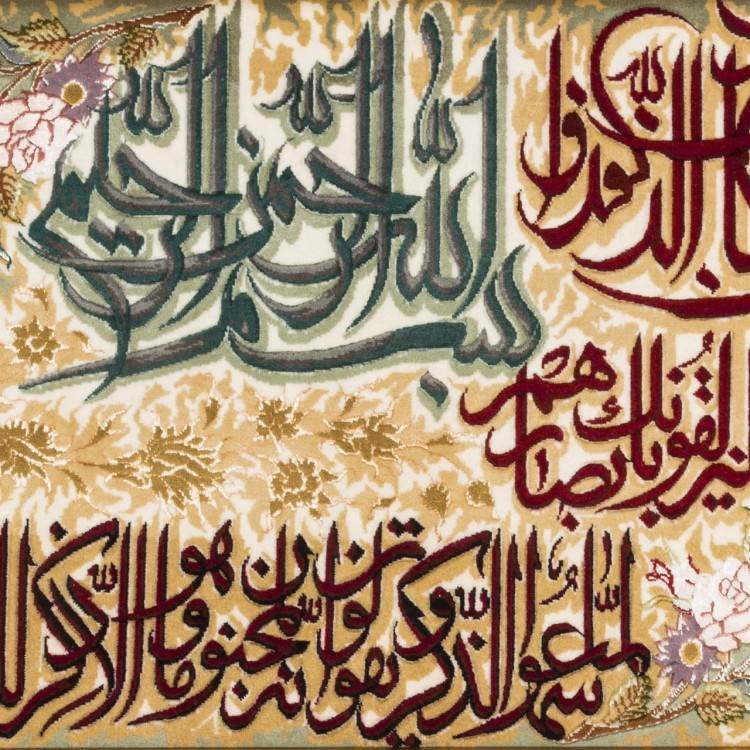 بسم الله الرحمن الرحيم
الذين كفروا
ليزلقونك بأبصارهم
لما سمعوا الذكر ويقولون إنه لمجنون وما هو إلا ذكر